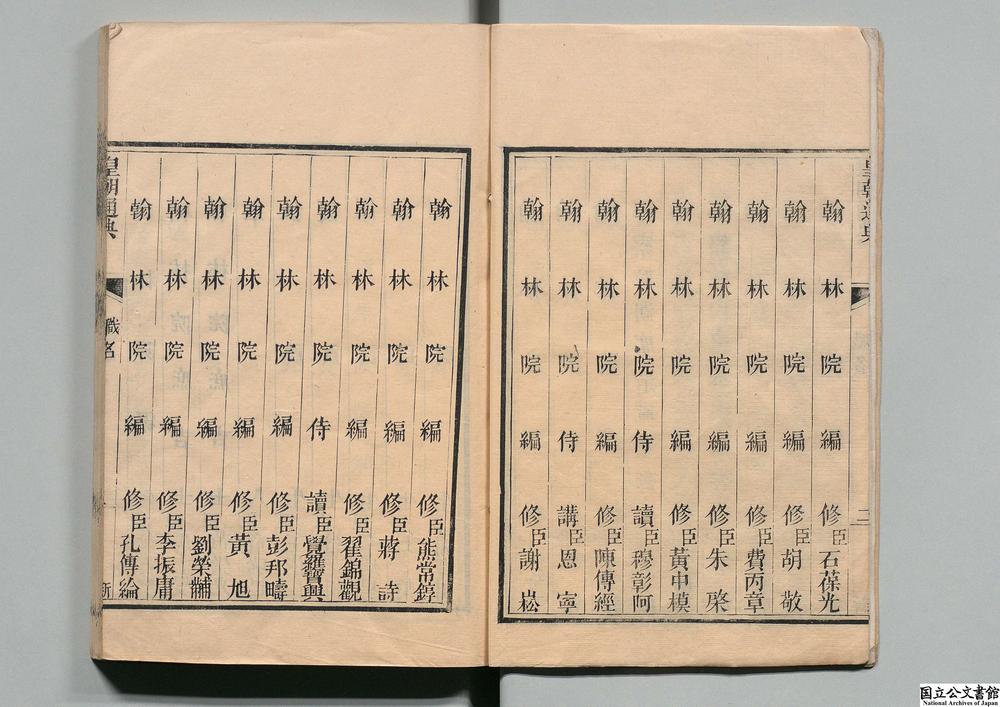 皇朝通典
二
翰林院編修臣石葆光
翰林院編修臣胡敬
翰林院編修臣費丙章
翰林院編修臣朱棨
翰林院編修臣黃中模
翰林院侍讀臣穆彰阿
翰林院編修臣陳傳經
翰林院侍講臣恩寧
翰林院編修臣謝崧
翰林院編修臣熊常錞
翰林院編修臣蔣詩
翰林院編修臣翟錦觀
翰林院侍讀臣覺羅寶興
翰林院編修臣彭邦疇
翰林院編修臣黃旭
翰林院編修臣劉榮黼
翰林院編修臣李振庸
翰林院編修臣孔傳綸
皇朝通典
職名
国立公文書館
National Archives of Japan